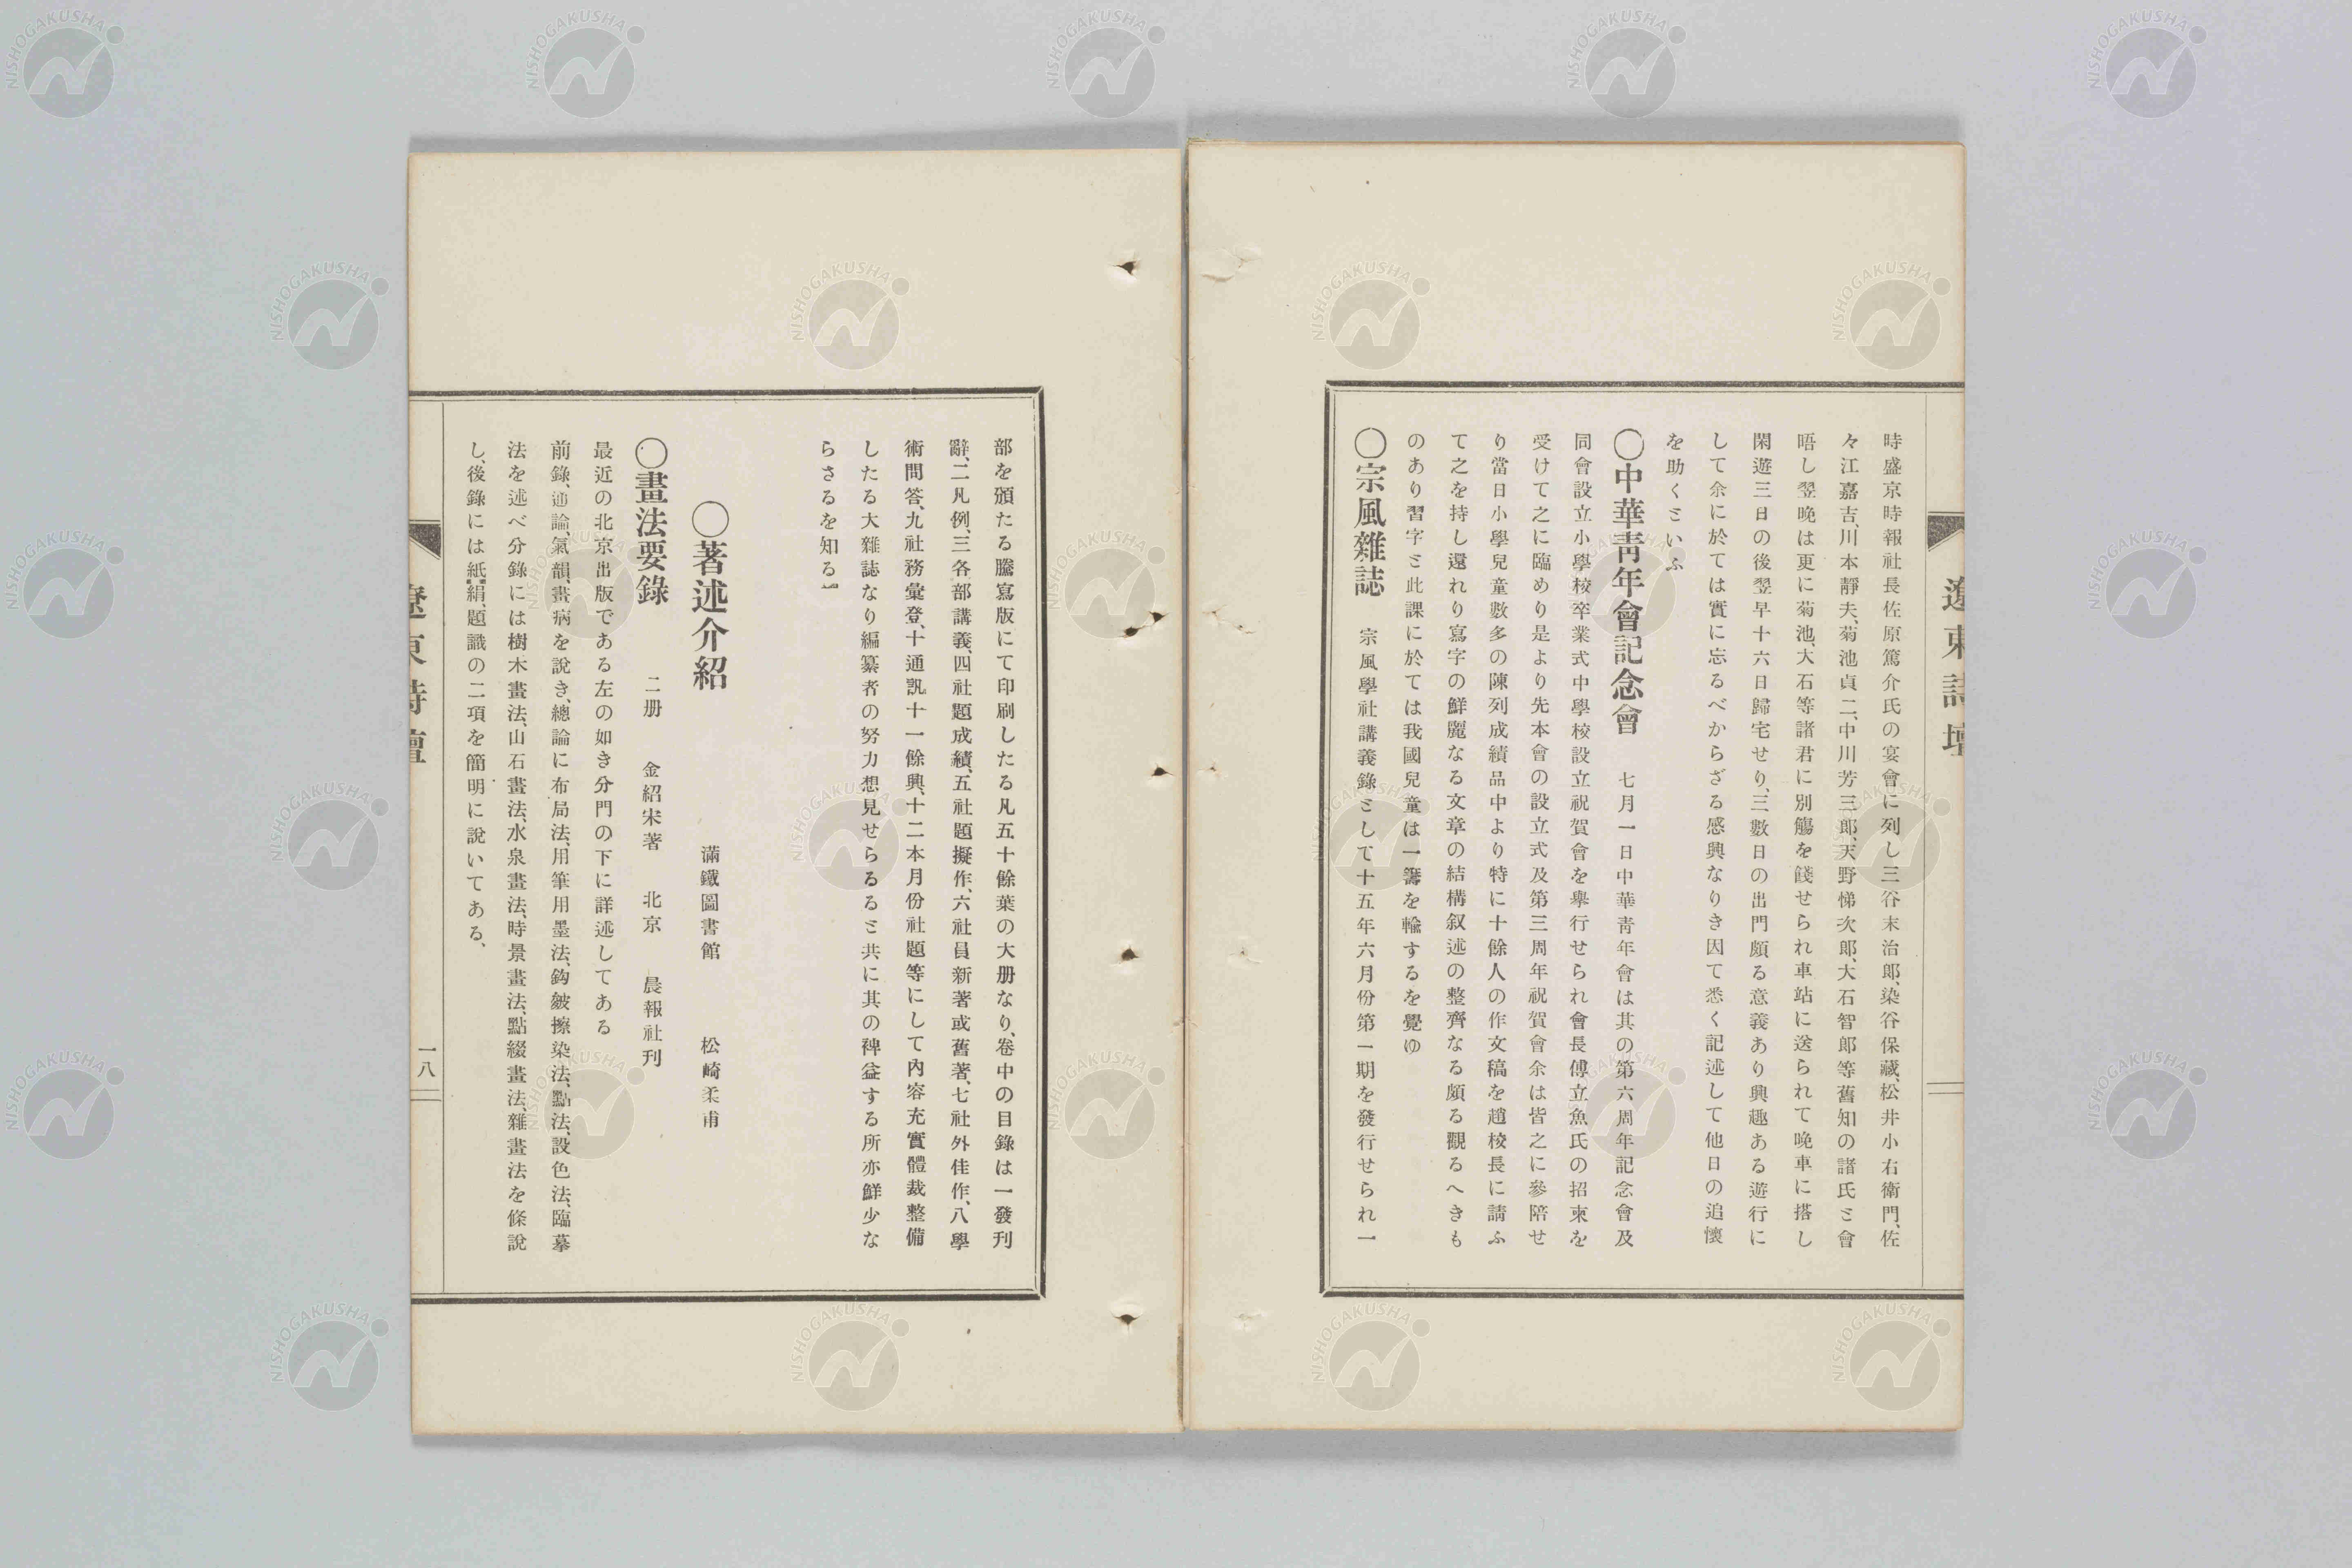 遼東詩壇
時盛京時報社長佐原篤介氏の宴會に列し三谷末治郎、染谷保藏、松井小右衛門、佐
々江嘉吉、川本靜夫、菊池貞二、中川芳三郎、天野悌次郎、大石智郎等舊知の諸氏と會
晤し翌晩は更に菊池、大石等諸君に別觴を餞せられ車站に送られて晩車に搭し
閑遊三日の後翌早十六日歸宅せり、三數日の出門頗る意義あり興趣ある遊行に
して余に於ては實に忘るべからざる感興なりき因て悉く記述して他日の追懷
を助くといふ
〇中華靑年會記念會　七月一日中華靑年會は其の第六周年記念會及
同會設立小學校卒業式中學校設立祝賀會を擧行せられ會長傅立魚氏の招柬を
受けて之に臨めり是より先本會の設立式及第三周年祝賀會余は皆之に參陪せ
り當日小學兒童數多の陳列成績品中より特に十餘人の作文稿を趙校長に請ふ
て之を持し還れり寫字の鮮麗なる文章の結構叙述の整齊なる頗る觀るへきも
のあり習字と此課に於ては我國兒童は一籌を輸するを覺ゆ
〇宗風雜誌　宗風學社講義錄として十五年六月份第一期を發行せられ一
部を頒たる謄寫版にて印刷したる凡五十餘葉の大册なり、卷中の目錄は一發刊
辭、二凡例、三各部講義、四社題成績、五社題擬作、六社員新著或舊著、七社外佳作、八學
術問答、九社務彙登、十通訊、十一餘興、十二本月份社題等にして內容充實體裁整備
したる大雜誌なり編纂者の努力想見せらるると共に其の裨益する所亦鮮少な
らさるを知る
〇著述介紹　滿鐵圖書館　松崎柔甫
〇畫法要錄　二册　金紹宋著　北京　晨報社刊
最近の北京出版である左の如き分門の下に詳述してある
前錄、通論、氣韻、畫病を說き、總論に布局法、用筆用墨法、鈎皴擦染法、點法、設色法、臨摹
法を述べ分錄には樹木畫法、山石畫法、水泉畫法、時景畫法、點綴畫法、雜畫法を條說
し、後錄には紙絹、題識の二項を簡明に說いてある、
遼東詩壇
一八